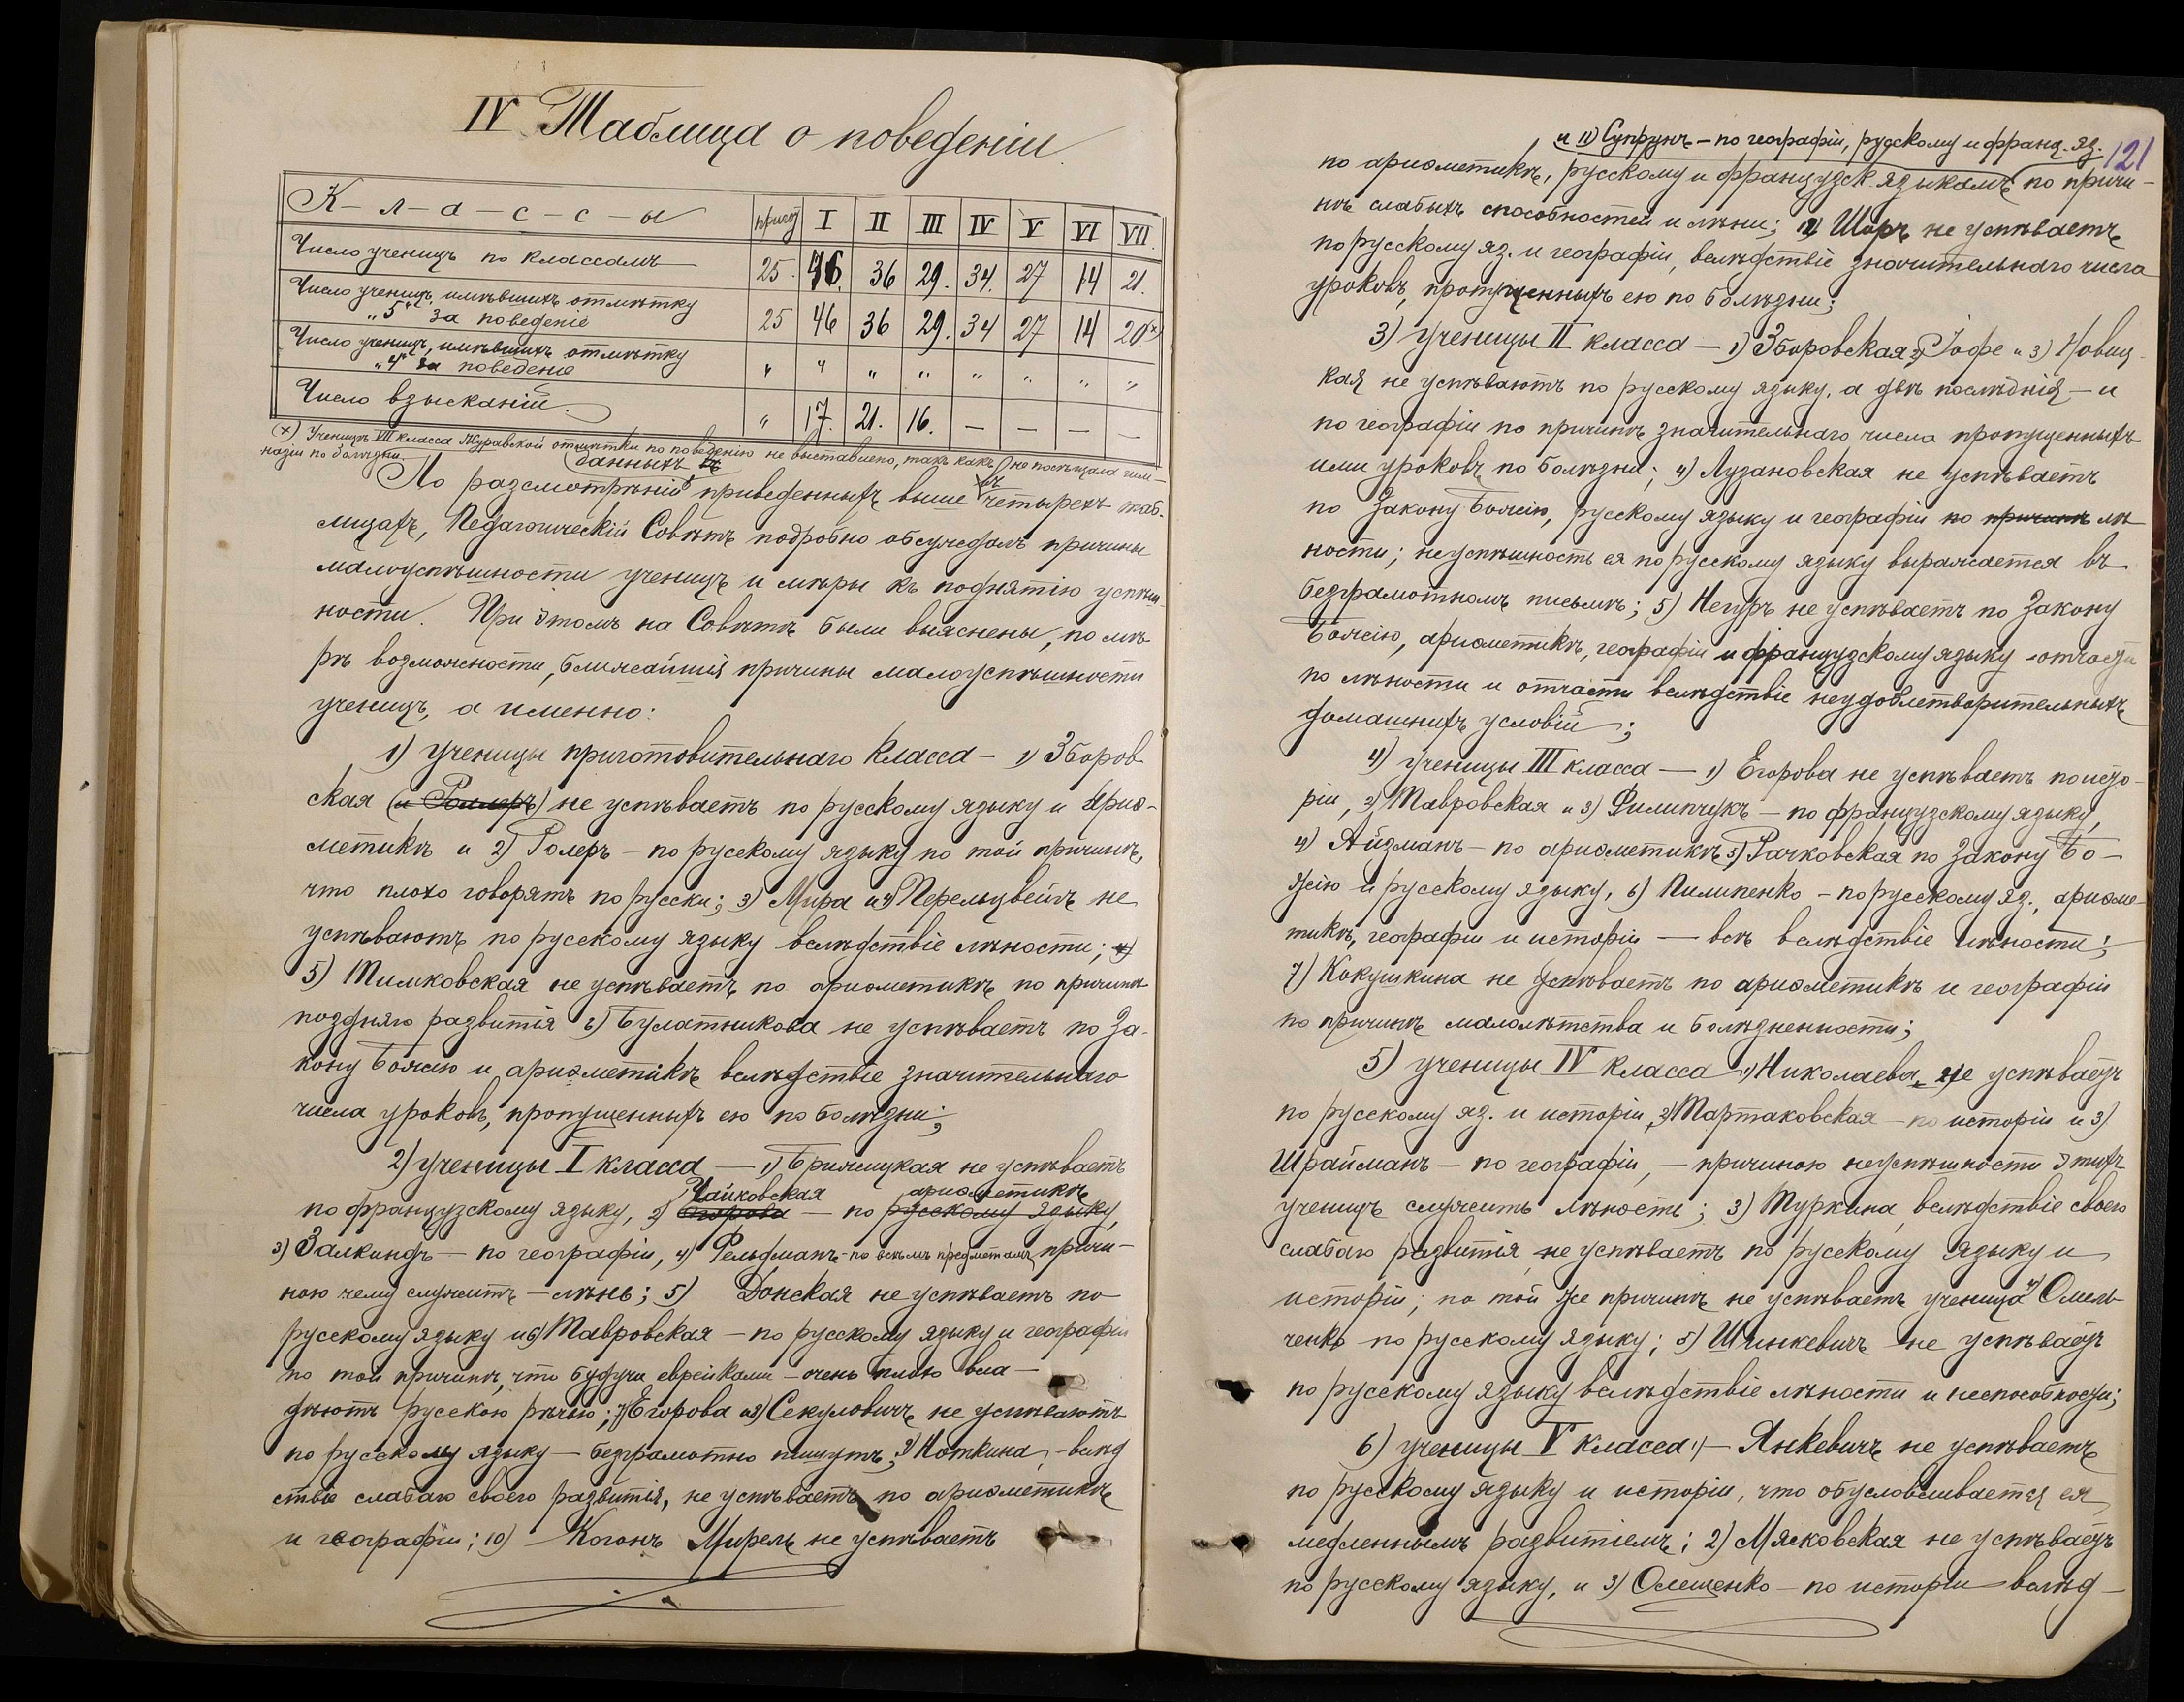 IV Таблица о поведеніи.
К-л-а-с-с-ы пригот. I II III IV V VI VII.
Число ученицъ по классамъ 25. 46. 36 29. 34. 27 14 21.
Число ученицъ, имѣвшихъ отмѣтку
„5“ за поведеніе 25 46 36 29. 34 27 14 20 х)
Число ученицъ, имѣвшихъ отмѣтку
„4“ за поведеніе „ „ „ „ „ „ „ „
Число взысканій. „ 17. 21. 16. — — — —
(х) Ученицѣ VII класса Журавской отмѣтки по поведенію не выставлено, такъ какъ не посѣщала гим-
назіи по болѣзни.
данныхъ въ
По разсмотрѣніи приведенныхъ выше въ четырехъ таб-
лицахъ, Педагогическій Совѣтъ подробно обсуждалъ причины
малоуспѣшности ученицъ и мѣры къ поднятію успѣш-
ности. При этомъ на Совѣтѣ были выяснены, по мѣ-
рѣ возможности, ближайшія причины малоуспѣшности
ученицъ, а именно:
1) ученицы приготовительнаго класса – 1) Зборов-
ская (и Роллеръ) не успѣваетъ по русскому языку и арие-
метикѣ и 2) Голеръ – по русскому языку по той причинѣ,
что плохо говорятъ по русски; 3) Мира и 4) Перельцвейгъ не
успѣваютъ по русскому языку вслѣдствіе лѣности; 4)
5) Тимковская не успѣваетъ по ариѳметикѣ по причинѣ
поздняго развитія 6) Булатникова не успѣваетъ по За-
кону Божію и ариѳметикѣ вслѣдствіе значительнаго
числа уроковъ, пропущенныхъ ею по болѣзни;
2) ученицы I класса — 1) Брижицкая не успѣваетъ
Чайковская ариѳметикѣ
по французскому языку, 2) Егорова — по русскому языку,
3) Залкиндъ — по географіи, 4) Фельдманъ – по всѣмъ предметамъ, причи-
ною чему служитъ – лѣнь; 5) Донская не успѣваетъ по
русскому языку и 6) Тавровская – по русскому языку и географіи
по той причинѣ, что будучи еврейками – очень плохо вла-
дѣютъ русскою рѣчью; 7) Егорова и 8) Секуловичъ не успѣваютъ
по русскому языку — безграмотно пишутъ; 9) Ноткина, – вслѣд
ствіе слабаго своего развитія, не успѣваетъ по ариѳметикѣ
и географіи; 10) Коганъ Мирель не успѣваетъ
121
и 11) Супрунъ – по географіи, русскому и франц. яз.
по ариѳметикѣ, русскому и французск. языкамъ по причи-
нѣ слабыхъ способностей и лѣни; 12) Шоръ не успѣваетъ
по русскому яз. и географіи, вслѣдствіе значительнаго числа
уроковъ, пропущенныхъ ею по болѣзни;
3) ученицы II класса – 1) Зборовская, 2) Іофе и 3) Новиц-
кая не успѣваютъ по русскому языку, а двѣ послѣднія – и
по географіи по причинѣ значительнаго числа пропущенныхъ
ими уроковъ по болѣзни; 4) Лузановская не успѣваетъ
по Закону Божію, русскому языку и географіи по причинѣ лѣ-
ности; неуспѣшность ея по русскому языку выражается въ
безграмотномъ письмѣ; 5) Негуръ не успѣваетъ по Закону
Божію, ариѳметикѣ, географіи и французскому языку – отчасти
по лѣности и отчасти вслѣдствіе неудовлетворительныхъ
домашнихъ условій;
4) ученицы III класса — 1) Егорова не успѣваетъ по исто-
ріи, 2) Тавровская и 3) Филипчукъ – по французскому языку,
4) Айзманъ – по ариѳметикѣ, 5) Рачковская по Закону Бо-
жію и русскому языку, 6) Пилипенко – по русскому яз., ариѳме-
тикѣ, географіи и исторіи — всѣ вслѣдствіе лѣности;
7) Кокушкина не успѣваетъ по ариѳметикѣ и географіи
по причинѣ малолѣтства и болѣзненности;
5) ученицы IV класса 1) Николаева не успѣваетъ
по русскому яз. и исторіи, 2) Мартаковская – по исторіи и 3)
Шрайманъ – по географіи, – причиною неуспѣшности этихъ
ученицъ служитъ лѣность; 3) Туркина, вслѣдствіе своего
слабаго развитія, не успѣваетъ по русскому языку и
исторіи; по той же причинѣ не успѣваетъ ученица 4) Омель-
ченко по русскому языку; 5) Шинкевичъ не успѣваетъ
по русскому языку вслѣдствіе лѣности и неспособности;
6) ученицы V класса 1) – Янкевичъ не успѣваетъ
по русскому языку и исторіи, что обусловливается ея
медленнымъ развитіемъ; 2) Мясковская не успѣваетъ
по русскому языку, и 3) Олешенко – по исторіи вслѣд-